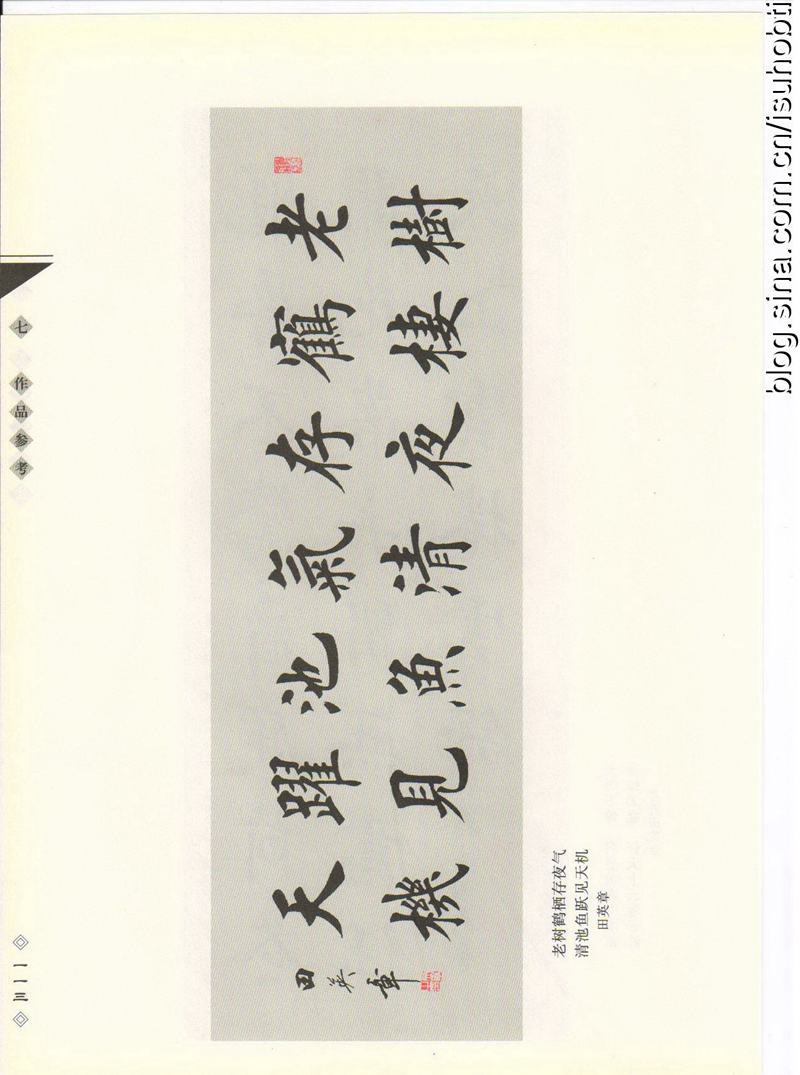 七 作品参考
一一三
老樹
鶴棲
存夜
氣清
池魚
躍見
天機
田英章
老树鹤栖存夜气
清池鱼跃见天机
田英章
blog.sina.com.cn/isuhobti